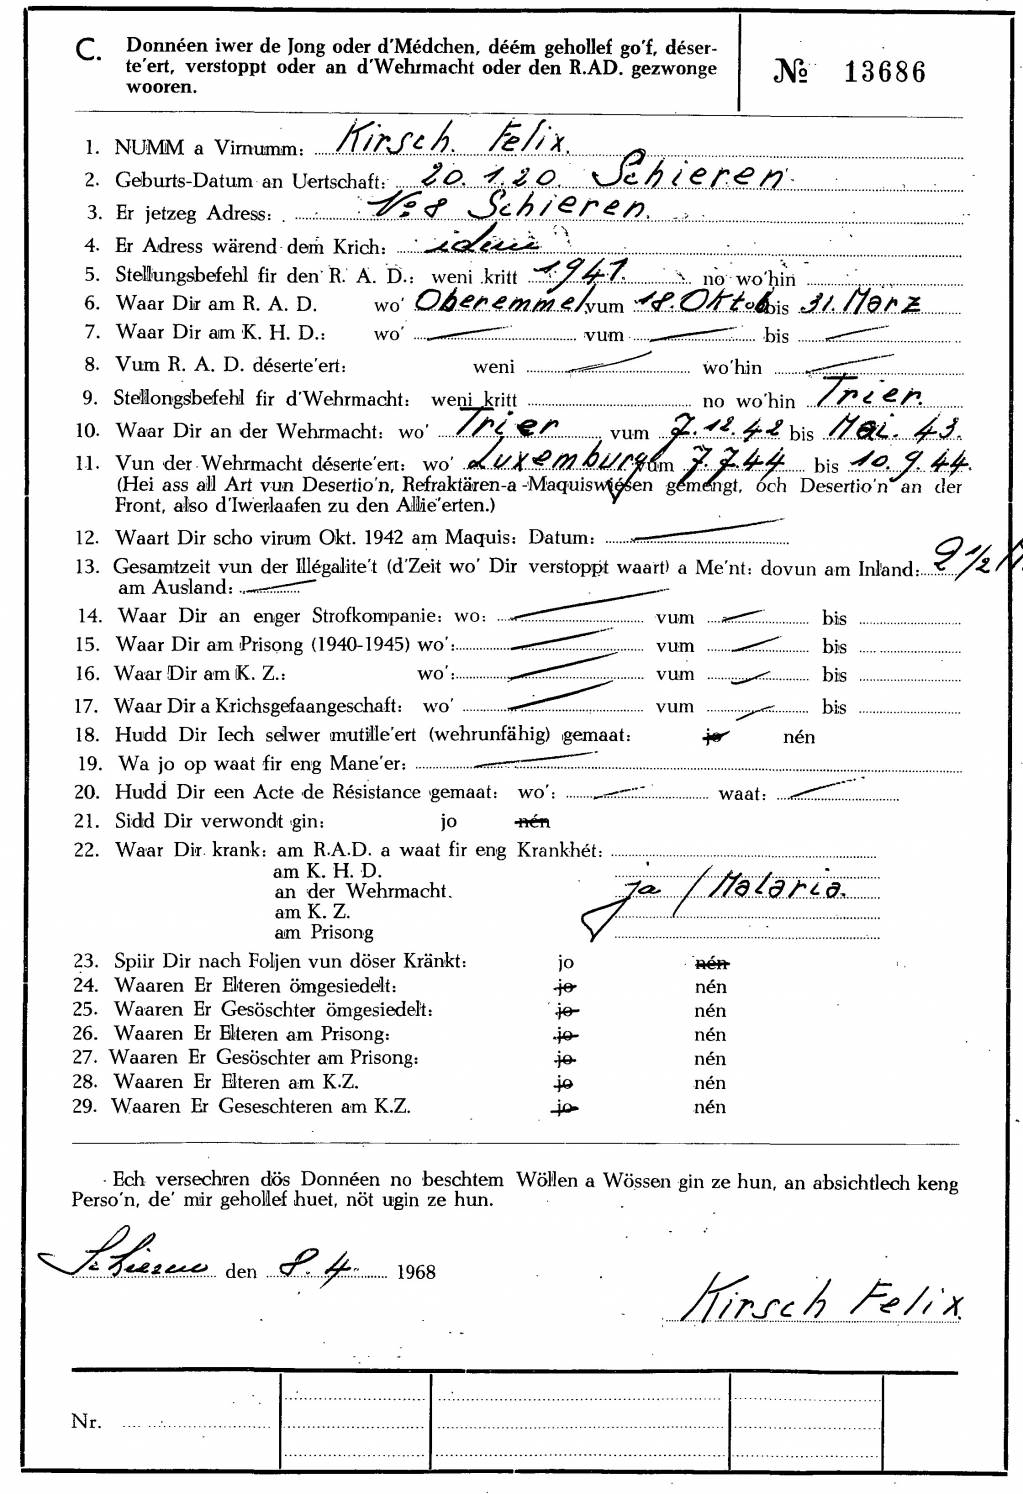 C. Donnéen iwer de Jong oder d'Médchen, déém gehollef go'f, déser-
te'ert, verstoppt oder an d'Wehrmacht oder den R.AD. gezwonge
wooren.
№ 13686
1. NUMM a Virnumm: Kirsch. Felix.
2. Geburts-Datum an Uertschaft: 20. 1. 20. Schieren
3. Er jetzeg Adress: No 8 Schieren.
4. Er Adress wärend dem Krich: idem
5. Stellungsbefehl fir den R. A. D.: weni kritt 1941. no wo'hin
6. Waar Dir am R. A. D. wo' Oberemmel vum 18. Oktob bis 31. März
7. Waar Dir am K. H. D.: wo' vum bis
8. Vum R. A. D. déserte'ert: weni wo'hin
9. Stellongsbefehl fir d'Wehrmacht: weni kritt no wo'hin Trier.
10. Waar Dir an der Wehrmacht: wo' Trier vum 7. 12. 42 bis Mai. 43.
11. Vun der Wehrmacht déserte'ert: wo' Luxemburg vum 7. 7. 44 bis 10. 9. 44.
(Hei ass all Art vun Desertio'n, Refraktären-a-Maquiswiesen gemengt, och Desertio'n an der
Front, also d'Iwerlaafen zu den Allie'erten.)
12. Waart Dir scho virum Okt. 1942 am Maquis: Datum:
13. Gesamtzeit vun der Illégalite't (d'Zeit wo' Dir verstoppt waart) a Me'nt: dovun am Inland: 2 1/2 M.
am Ausland:
14. Waar Dir an enger Strofkompanie: wo: vum bis
15. Waar Dir am Prisong (1940-1945) wo': vum bis
16. Waar Dir am K. Z.: wo': vum bis
17. Waar Dir a Krichsgefaangeschaft: wo' vum bis
18. Hudd Dir Iech selwer mutille'ert (wehrunfähig) gemaat: jo nén
19. Wa jo op waat fir eng Mane'er:
20. Hudd Dir een Acte de Résistance gemaat: wo': waat:
21. Sidd Dir verwondt gin: jo nén
22. Waar Dir krank: am R.A.D. a waat fir eng Krankhét:
am K. H. D.
an der Wehrmacht. ja / Malaria.
am K. Z.
am Prisong
23. Spiir Dir nach Foljen vun döser Kränkt: jo nén
24. Waaren Er Elteren ömgesiedelt: jo nén
25. Waaren Er Gesöschter ömgesiedelt: jo nén
26. Waaren Er Elteren am Prisong: jo nén
27. Waaren Er Gesöschter am Prisong: jo nén
28. Waaren Er Elteren am K.Z. jo nén
29. Waaren Er Geseschteren am K.Z. jo nén
Ech versechren dös Donnéen no beschtem Wöllen a Wössen gin ze hun, an absichtlech keng
Perso'n, de' mir gehollef huet, nöt ugin ze hun.
Schieren den 8. 4. 1968
Kirsch Felix.
Nr.